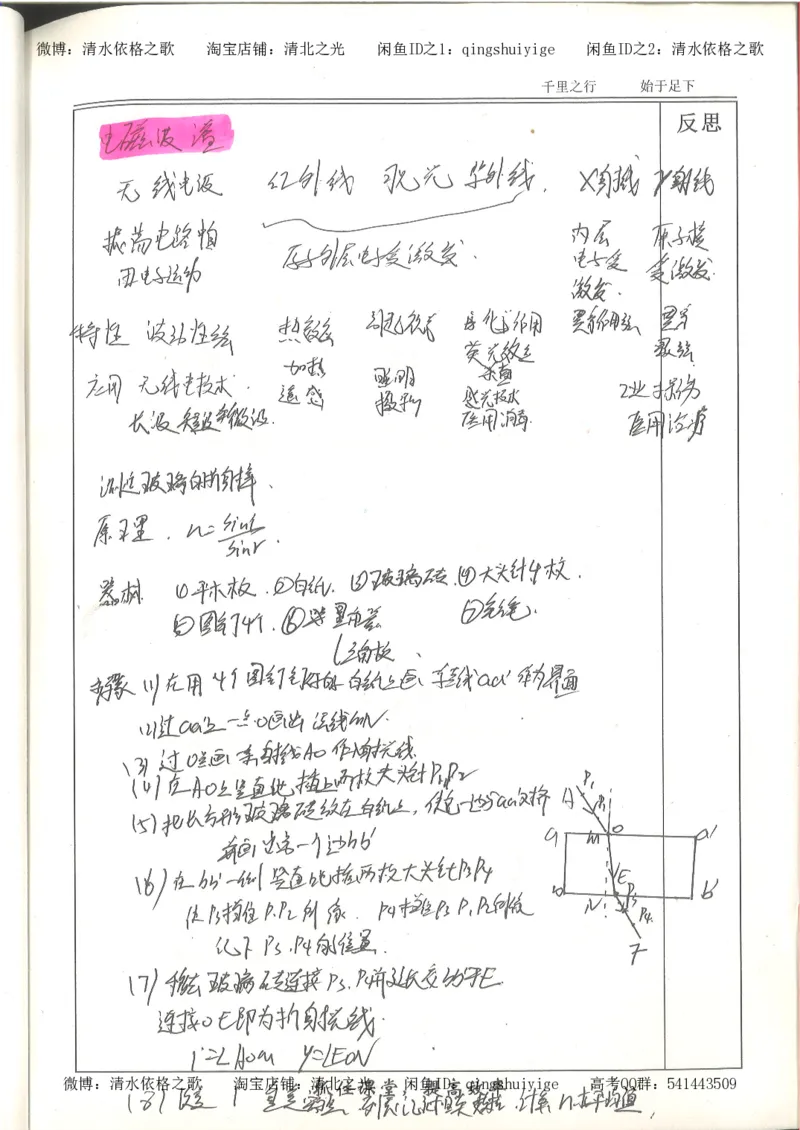 微博：清水依格之歌 淘宝店铺：清北之光 闲鱼ID之1：qingshuiyige 闲鱼ID之2：清水依格之歌
千里之行 始于足下
反思
电磁波谱
无线电波 红外线 可见光 紫外线. X射线 γ射线
振荡电路 电子运动 原子外层电子受激发. 内层电子受激发. 原子核受激发.
特性 波动性强 热效应 引起视觉 化学作用 荧光效应
应用 无线电技术. 加热 遥感 照明 摄影 感光技术 医用消毒 工业探伤 医用治疗
测定玻璃的折射率.
原理. n=sini/sinr.
器材 ①平木板. ②白纸. ③玻璃砖. ④大头针4枚.
⑤图钉4个. ⑥量角器 ⑦铅笔.
三角板.
步骤 (1)在用4个图钉 白纸上画 直线aa'作为界面
(2)过aa'上一点O画出法线MN.
(3)过O点画 射线AO作入射光线.
(4)在AO上竖直地插上两枚大头针P₁P₂
(5)把长方形玻璃砖放在白纸上，使它一边与aa'对齐
并画出另一个边bb'
(6)在bb'一侧竖直地插两枚大头针P₃P₄
使P₃挡住P₁.P₂的像. P₄挡住P₃ P₁P₂的像
记下P₃.P₄的位置.
(7)移去玻璃砖连接P₃.P₄并延长交bb'于E
连接OE即为折射光线.
i=∠AOM r=∠EON
A P₁ P₂ a M O a' E b N P₃ P₄ b' F
微博：清水依格之歌 淘宝店铺：清北之光 闲鱼ID：qingshuiyige 高考QQ群：541443509
抓住课堂，提高效率
(8) 计算n 平均值